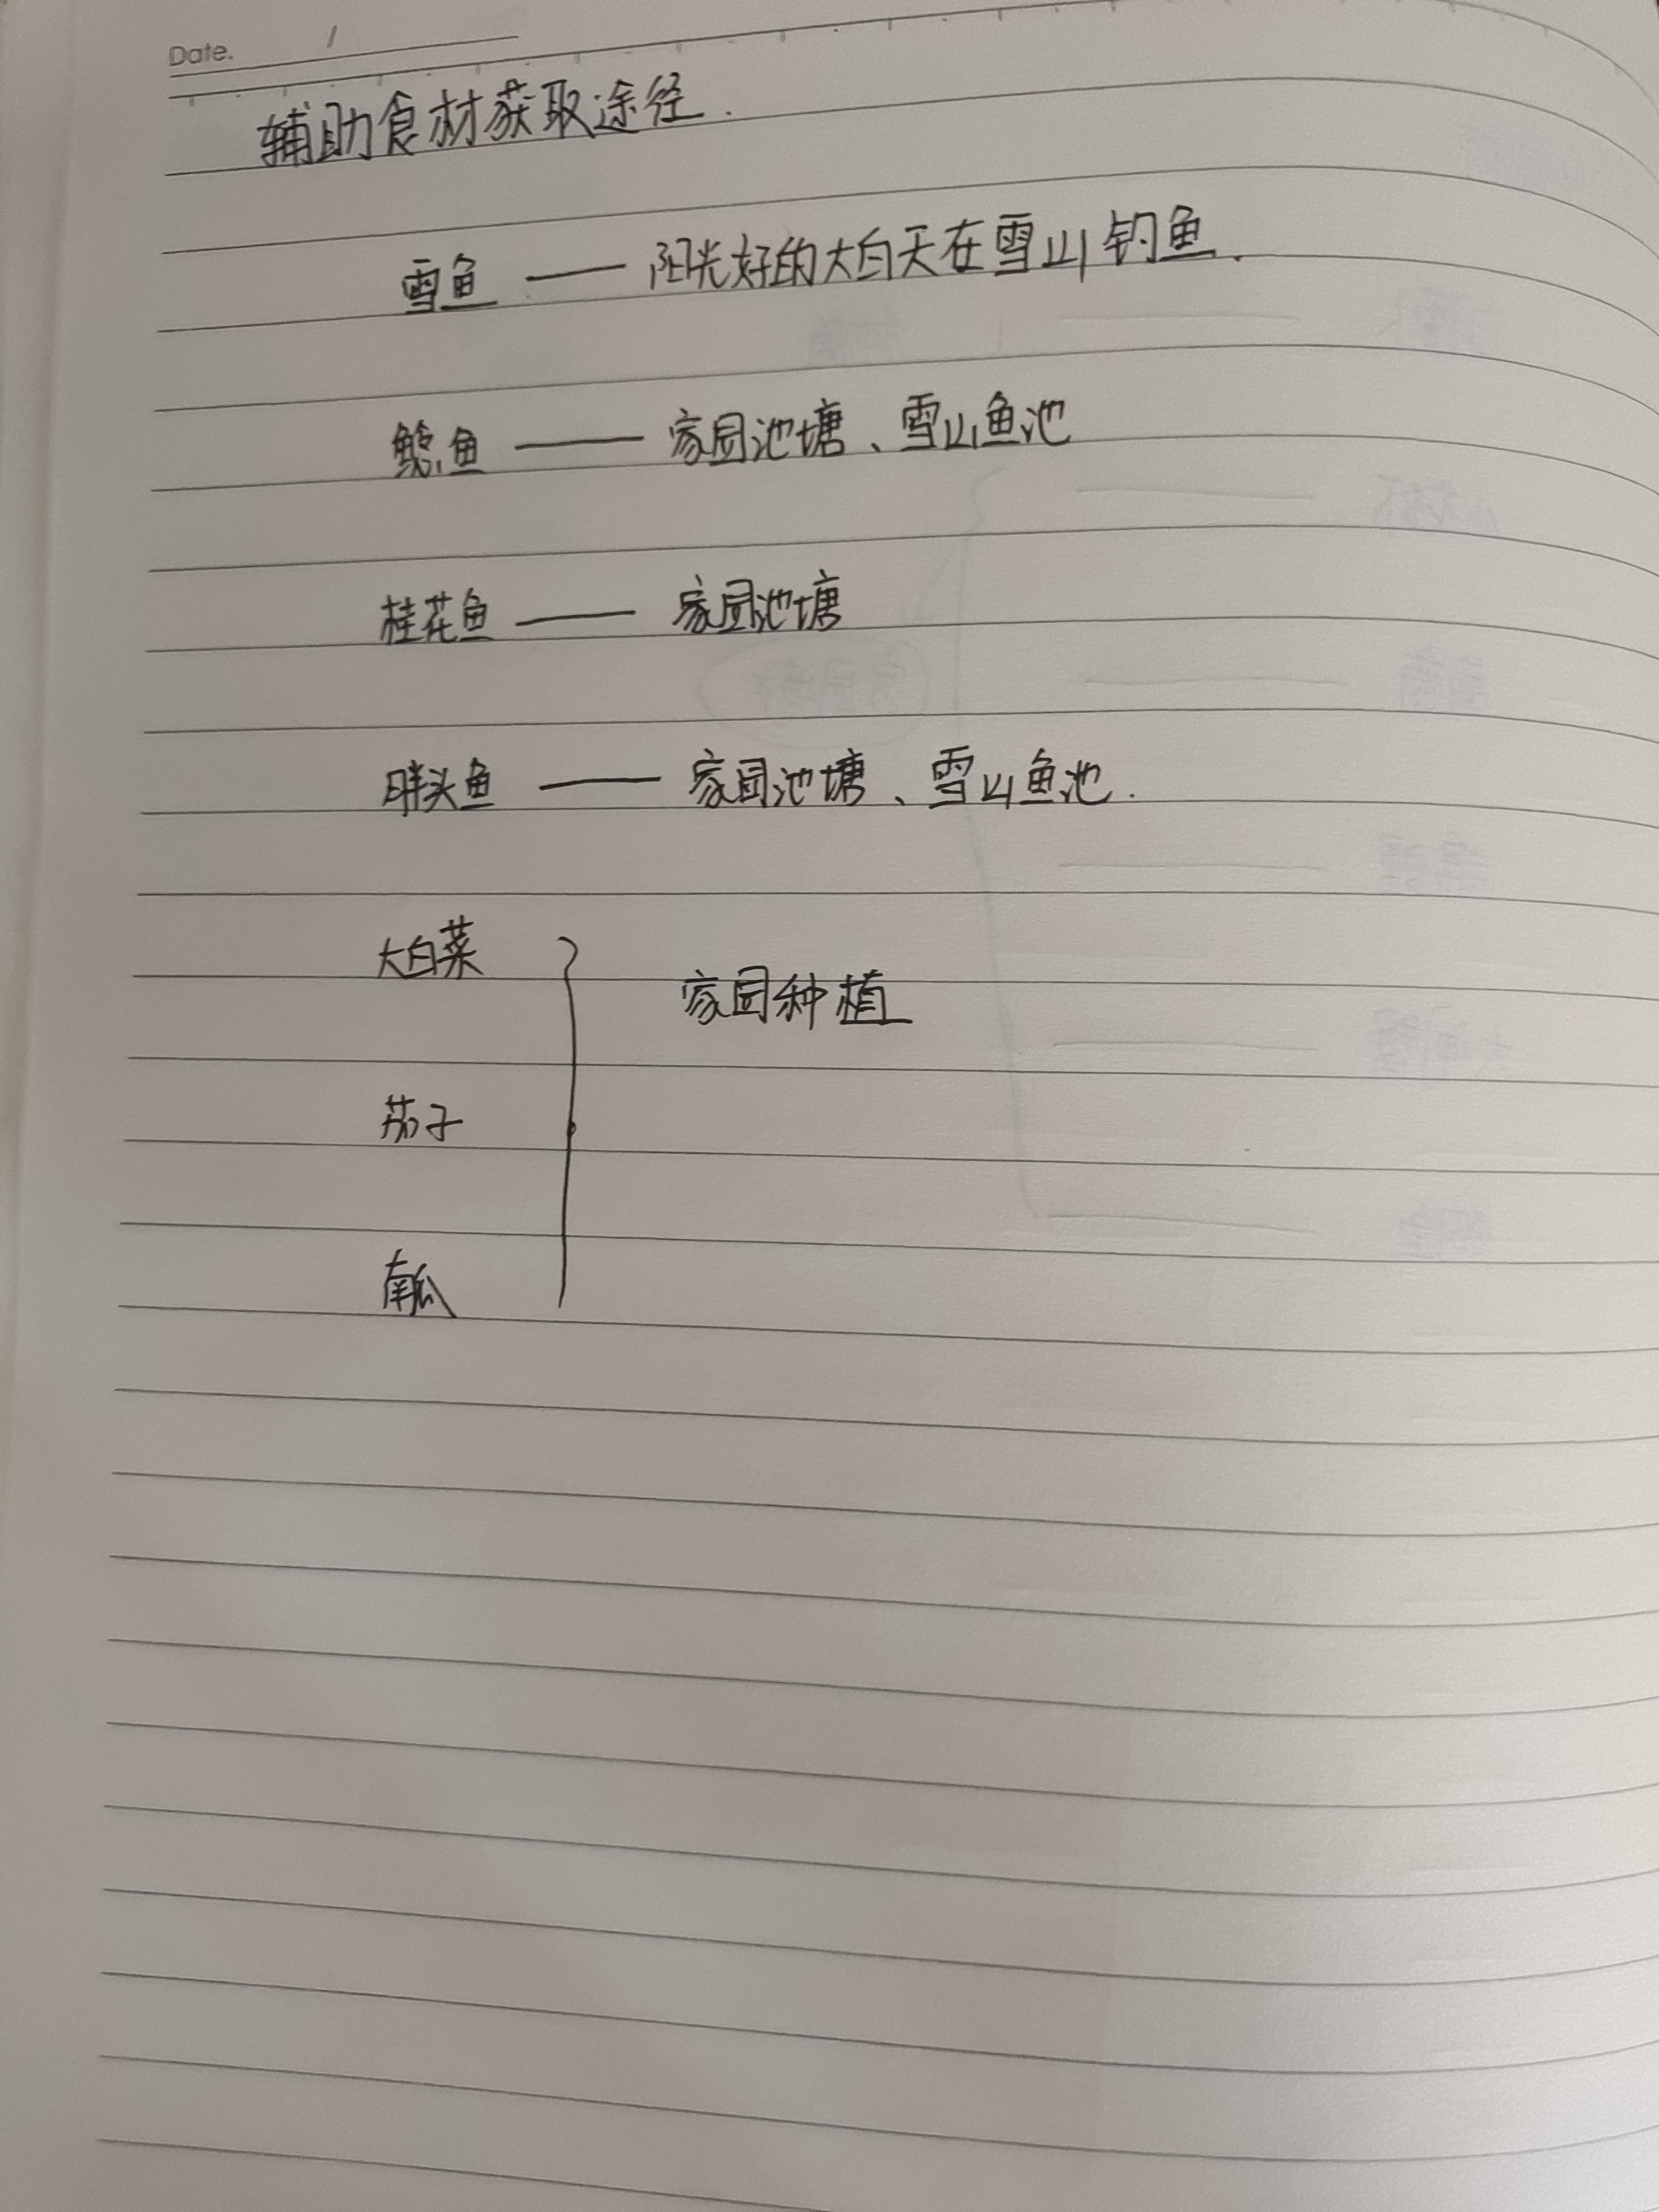 Date. /
辅助食材获取途径.
雪鱼 —— 阳光好的大白天在雪山钓鱼.
鲶鱼 —— 家园池塘、雪山鱼池
桂花鱼 —— 家园池塘
胖头鱼 —— 家园池塘、雪山鱼池.
大白菜
家园种植
茄子
南瓜